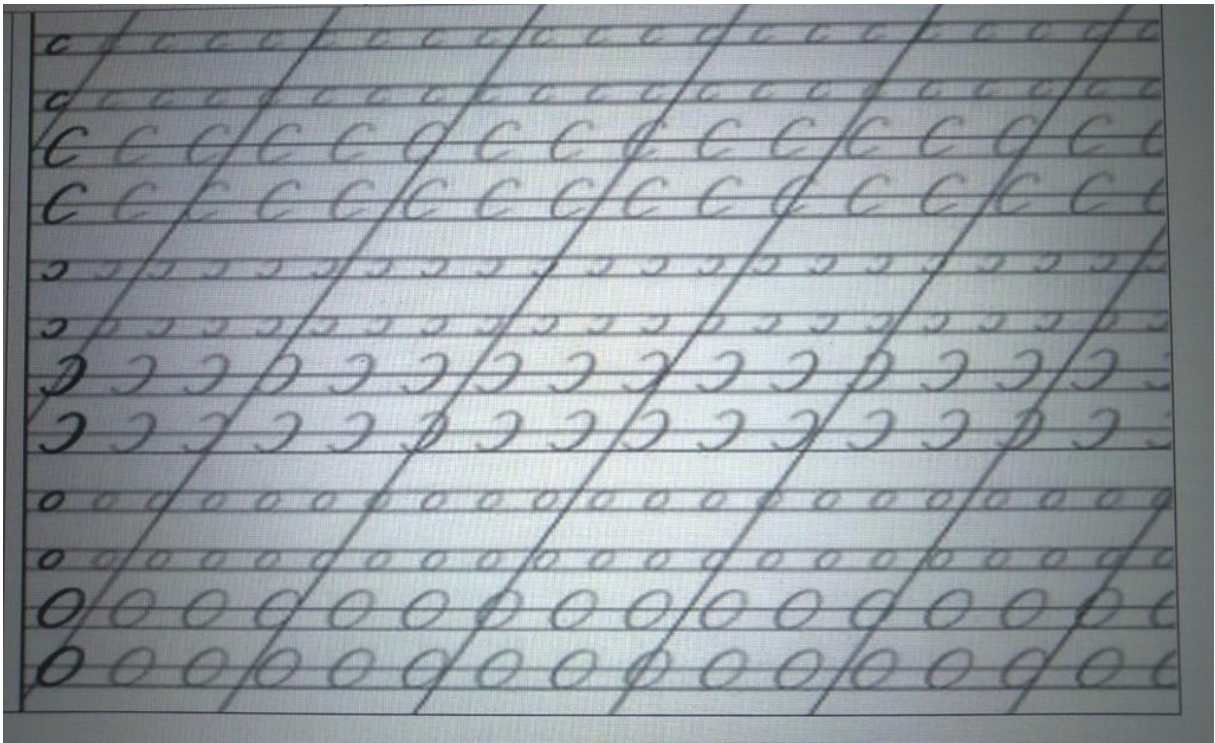 c c c c c c c c c c c c c c c c c c c c c
c c c c c c c c c c c c c c c c c c c c c
C C C C C C C C C C C C C C C C
C C C C C C C C C C C C C C C C
ɔ ɔ ɔ ɔ ɔ ɔ ɔ ɔ ɔ ɔ ɔ ɔ ɔ ɔ ɔ ɔ ɔ ɔ ɔ ɔ ɔ
ɔ ɔ ɔ ɔ ɔ ɔ ɔ ɔ ɔ ɔ ɔ ɔ ɔ ɔ ɔ ɔ ɔ ɔ ɔ ɔ ɔ
Ɔ Ɔ Ɔ Ɔ Ɔ Ɔ Ɔ Ɔ Ɔ Ɔ Ɔ Ɔ Ɔ Ɔ Ɔ Ɔ
Ɔ Ɔ Ɔ Ɔ Ɔ Ɔ Ɔ Ɔ Ɔ Ɔ Ɔ Ɔ Ɔ Ɔ Ɔ Ɔ
o o o o o o o o o o o o o o o o o o o o o
o o o o o o o o o o o o o o o o o o o o o
O O O O O O O O O O O O O O O O
O O O O O O O O O O O O O O O O